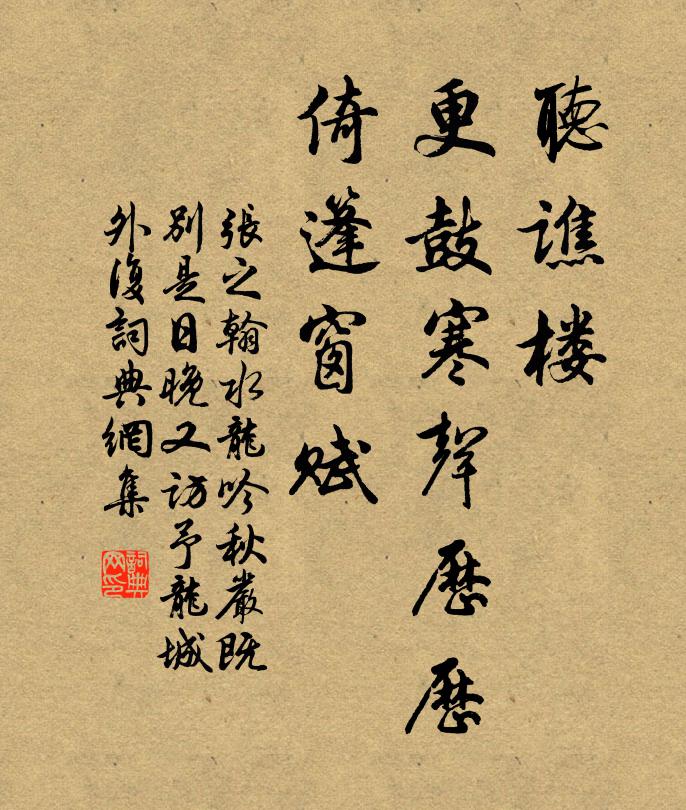 聽譙楼
更鼓寒聲歷歷
倚篷窗赋
張之翰水龍吟秋巖既
别是日晚又訪予龍城
外復詞典網集
詞典網印